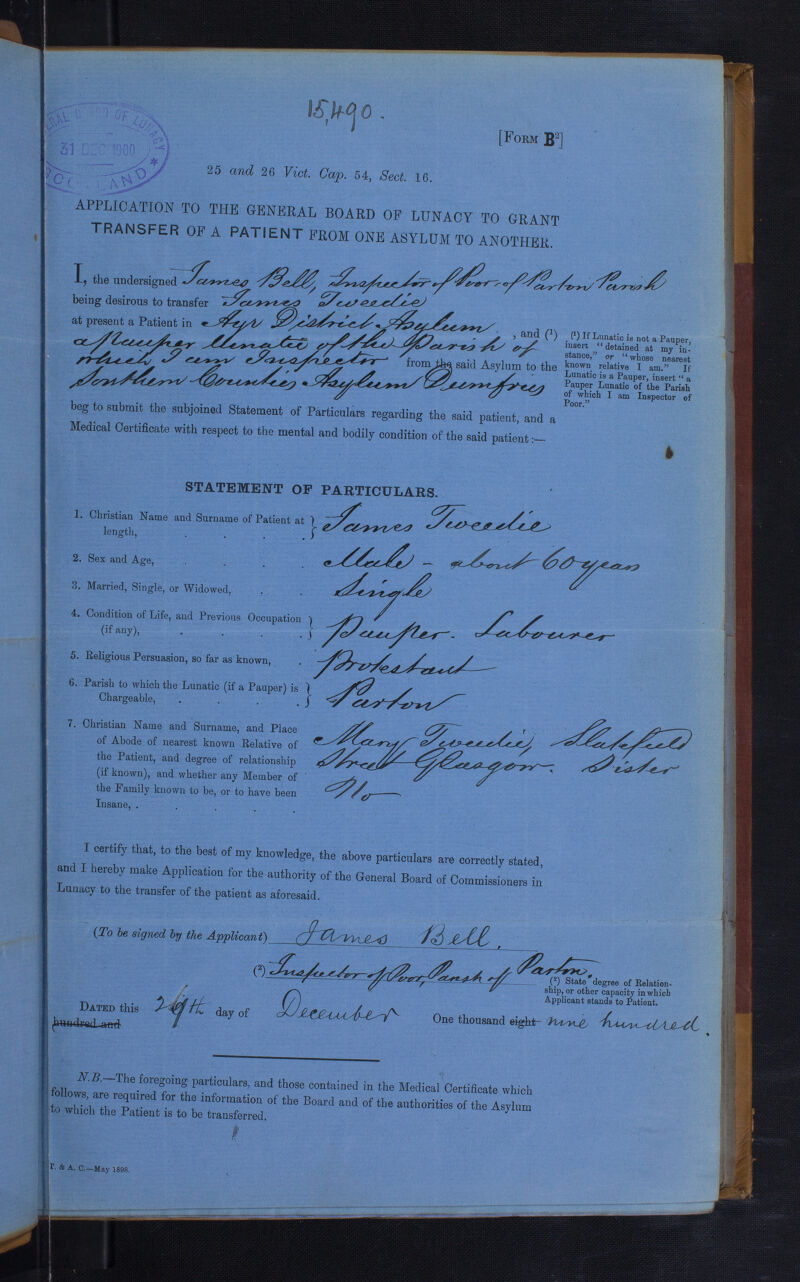 15,490.
[FORM B²]
BOARD OF LUNACY
31 DEC 1900
25 and 26 Vict. Cap. 54, Sect. 16.
APPLICATION TO THE GENERAL BOARD OF LUNACY TO GRANT
TRANSFER OF A PATIENT FROM ONE ASYLUM TO ANOTHER.
I, the undersigned James Bell, Inspector of Poor of Parton Parish
being desirous to transfer James Tweedie
at present a Patient in Ayr District Asylum, and (¹)
a Pauper Lunatic of the Parish of
which I am Inspector from the said Asylum to the
Southern Counties Asylum Dumfries
(¹) If Lunatic is not a Pauper,
insert "detained at my in-
stance," or "whose nearest
known relative I am." If
Lunatic is a Pauper, insert "a
Pauper Lunatic of the Parish
of which I am Inspector of
Poor."
beg to submit the subjoined Statement of Particulars regarding the said patient, and a
Medical Certificate with respect to the mental and bodily condition of the said patient:—
STATEMENT OF PARTICULARS.
1. Christian Name and Surname of Patient at James Tweedie
length, . . . .
2. Sex and Age, . . . . Male - about 60 years
3. Married, Single, or Widowed, . . Single
4. Condition of Life, and Previous Occupation Pauper. Labourer
(if any), . . . .
5. Religious Persuasion, so far as known, . Protestant
6. Parish to which the Lunatic (if a Pauper) is Parton
Chargeable, . . . .
7. Christian Name and Surname, and Place Mary Tweedie, Slatefield
of Abode of nearest known Relative of Street Glasgow. Sister
the Patient, and degree of relationship
(if known), and whether any Member of No
the Family known to be, or to have been
Insane, . . . . .
I certify that, to the best of my knowledge, the above particulars are correctly stated,
and I hereby make Application for the authority of the General Board of Commissioners in
Lunacy to the transfer of the patient as aforesaid.
(To be signed by the Applicant) James Bell.
(²) Inspector of Poor, Parish of Parton.
(²) State degree of Relation-
ship, or other capacity in which
Applicant stands to Patient.
DATED this 29th day of December One thousand eight nine hundred.
hundred and
N.B.—The foregoing particulars, and those contained in the Medical Certificate which
follows, are required for the information of the Board and of the authorities of the Asylum
to which the Patient is to be transferred.
T. & A. C.—May 1898.